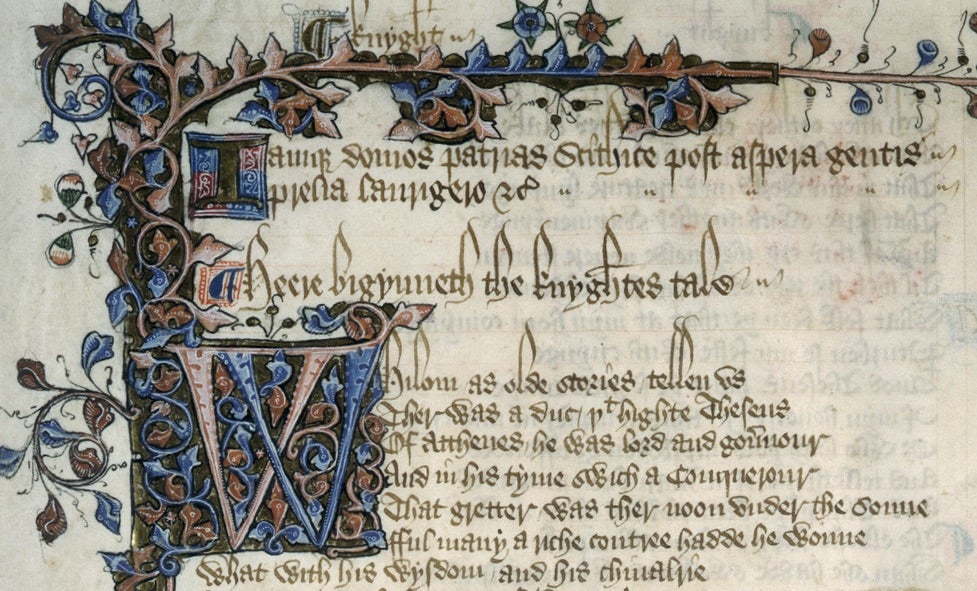 ¶ Knyght
Iamq; domos patrias Scithice post aspera gentis
prelia laurigero &c̃
¶ Heere bigynneth the knyghtes tale
Whilom as olde stories tellen vs
Ther was a duc / yͭ highte Theseus
Of Atthenes he was lord and gou̾nour
And in his tyme swich a Conquerour
That gretter was ther noon vnder the sonne
fful many a riche contree hadde he wonne
What with his wysdom and his chiualrie